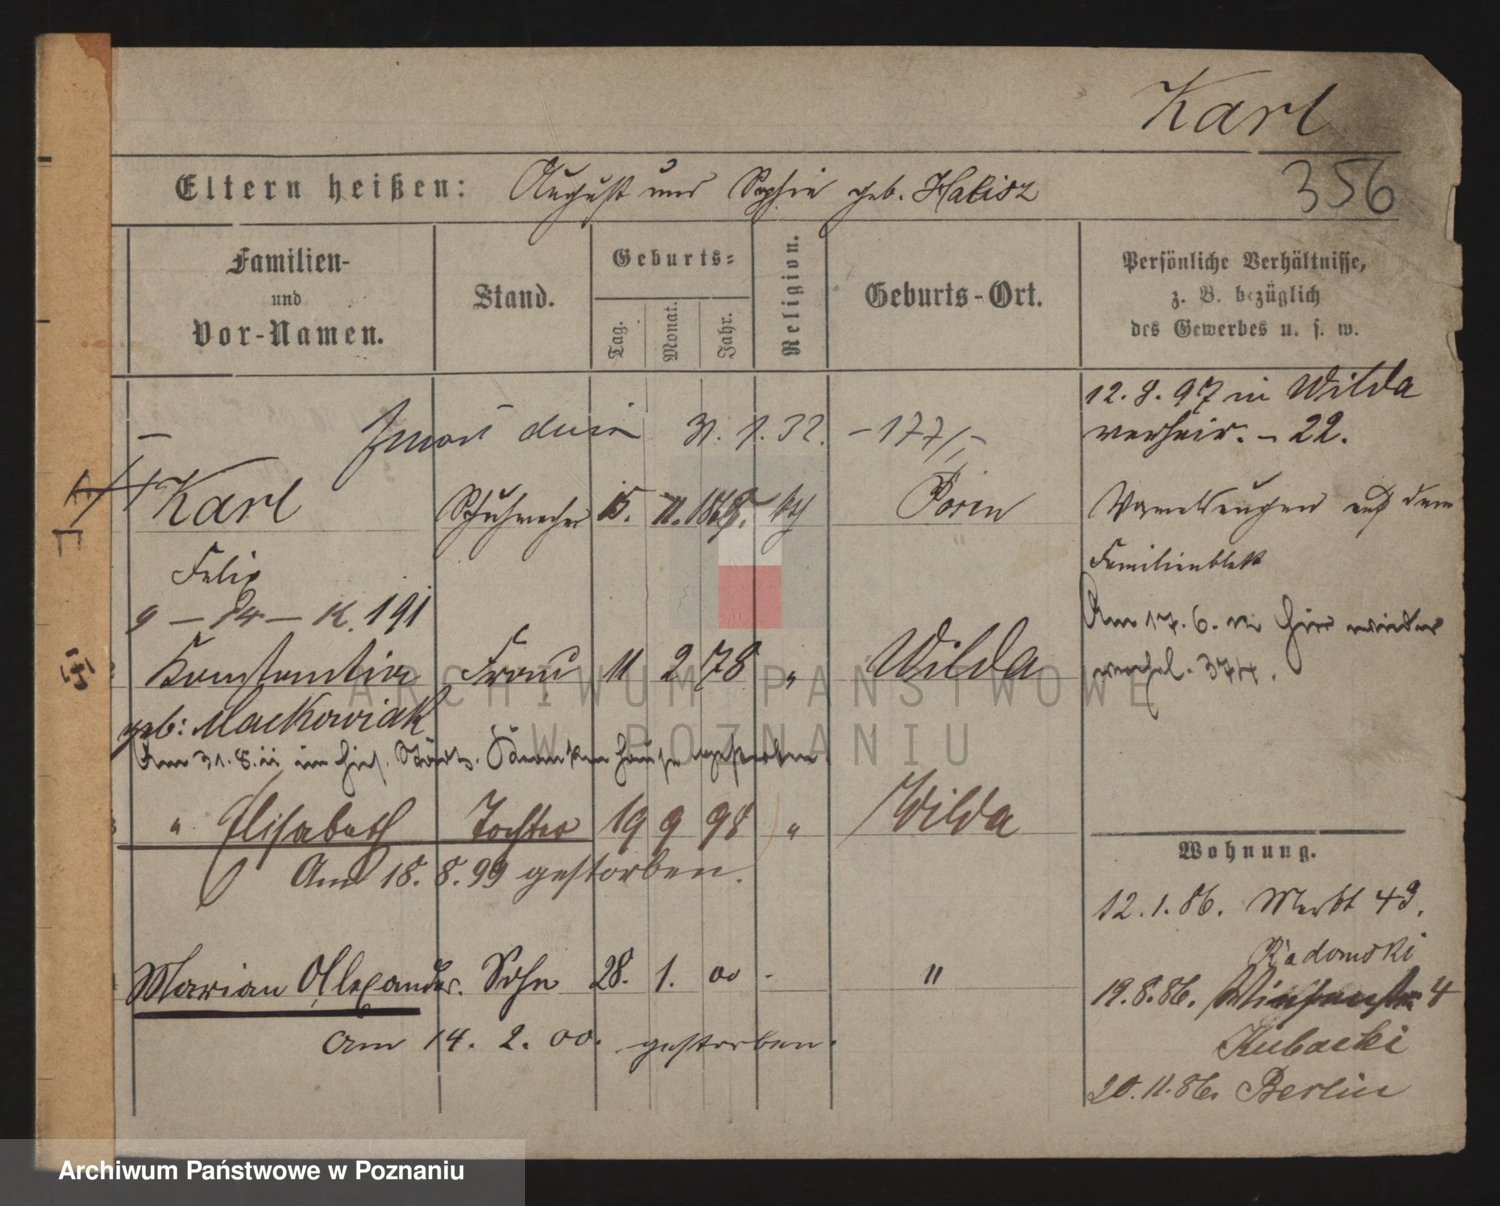 Karl
356
Eltern heißen: August und Sophie geb. Halisz
Familien-
und
Vor-Namen.
Stand.
Geburts-
Tag.
Monat.
Jahr.
Religion.
Geburts-Ort.
Persönliche Verhältnisse,
z. B. bezüglich
des Gewerbes u. s. w.
12. 8. 97 in Wilda
verheir. – 22.
Zmarł dnia 31. 1. 32. – 177/
Karl Schuhmacher 15. 11. 1868. kth Posen
auf dem
Familienblatt
Felix
9 – 14 – K. 191
Am 17. 6. hier wieder
374.
Konstantia Frau 11 2 78 " Wilda
geb: Mackowiak
Am 31. 8. 11 im hies. Städt. Krankenhause gestorben.
" Elisabeth Tochter 19 9 98 " Wilda
Am 18. 8. 99 gestorben.
Wohnung.
12. 1. 86. Markt 49.
Radomski
Marian Alexander. Sohn 28. 1. 00 - "
19. 8. 86. 4
Kubacki
am 14. 2. 00. gestorben.
20. 11. 86. Berlin
ARCHIWUM PAŃSTWOWE
W POZNANIU
Archiwum Państwowe w Poznaniu